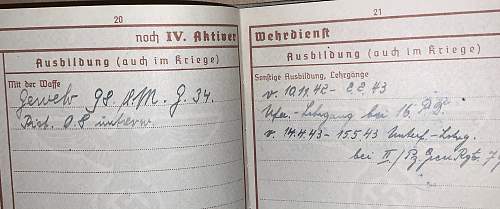 20
noch IV. Aktiver
Ausbildung (auch im Kriege)
Mit der Waffe
Gewehr 98 u. M. G. 34.
Pist. 0.8
21
Wehrdienst
Ausbildung (auch im Kriege)
Sonstige Ausbildung, Lehrgänge
v. 10.11.42 - 2.2.43
Ufrz.-Lehrgang bei 16.
v. 14.4.43 - 15.5.43 Unterf.-Lehrg.
bei II./Pz. Gren. Rgt.